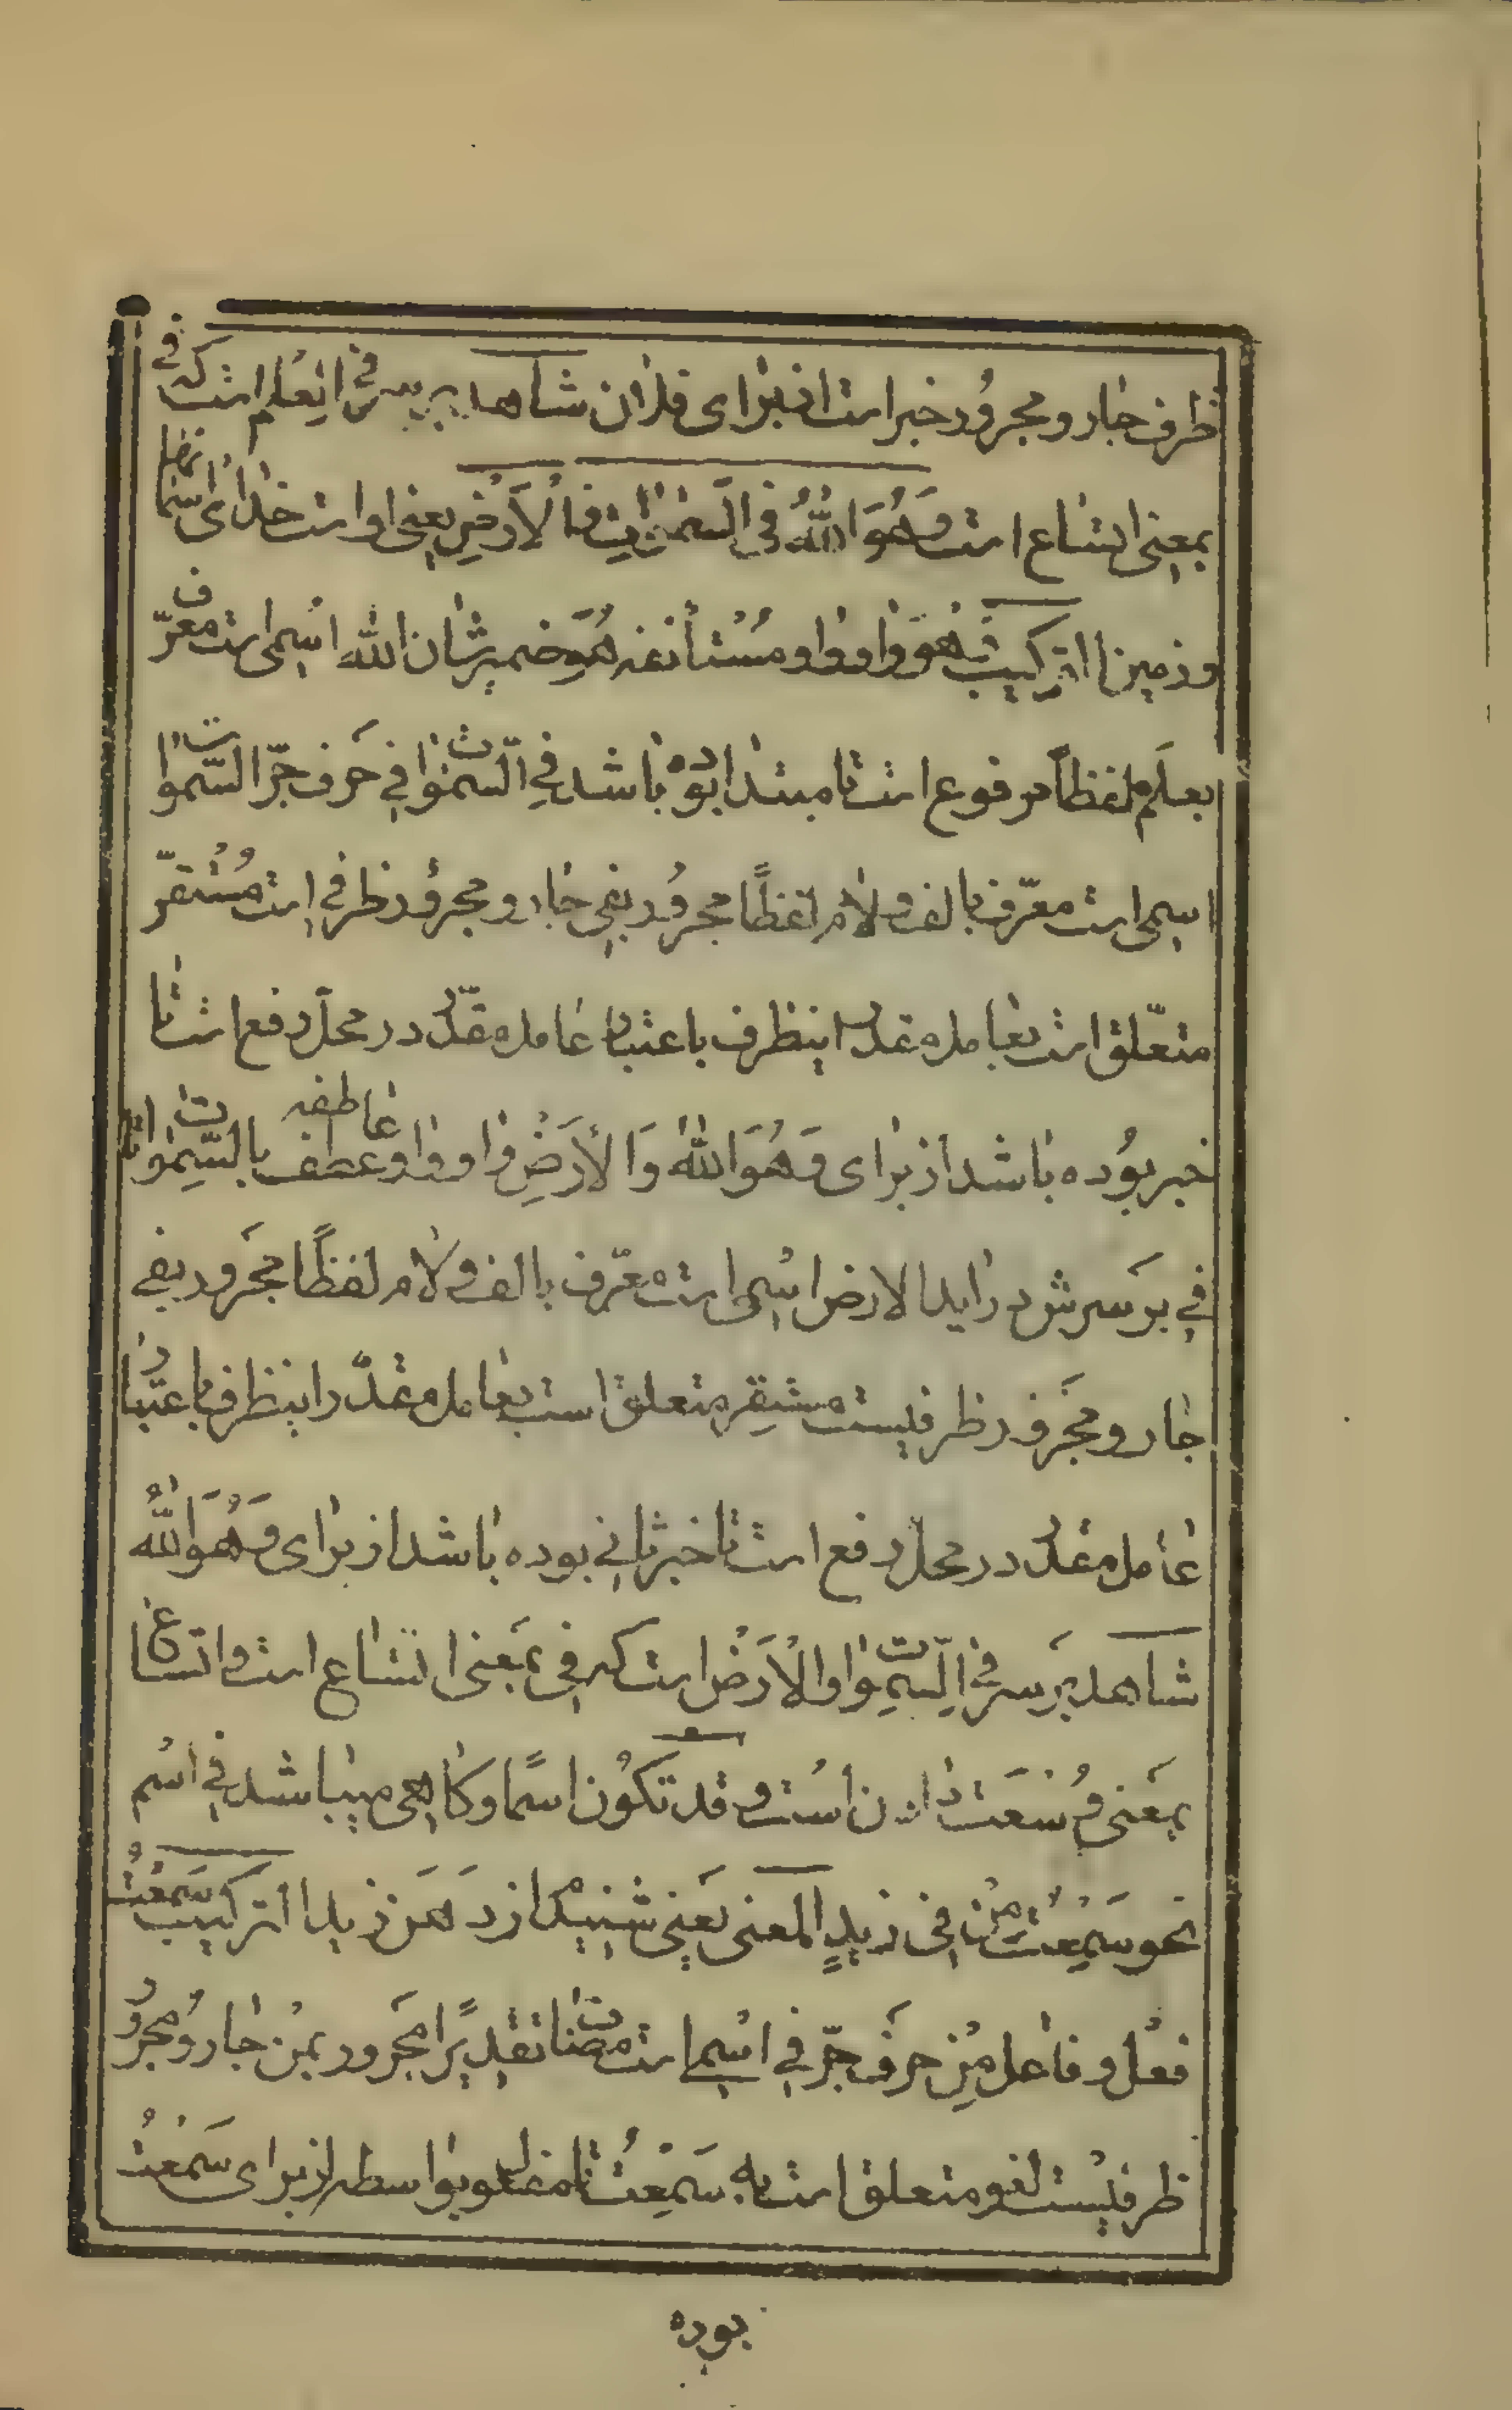 ظرف جار و مجرور خبر است از برای فلان شاهد بر سر فی العلم است که فی
بمعنی اتساع است وَهُوَ اللّٰهُ فی السَّمٰوٰاتِ وَالْاَرْضِ یعنی او است خدای آسمانها
و زمین التركیب وهو واو واو مُسْتأنفه هُوَ ضمیر شان الله اسمی است معرّف
بعلم لفظاً مرفوع است تا مبتدا بوده باشد فی السّمٰوات فی حَرف جرّ السّموات
اسمی است معرّف بالف و لام لفظًا مجرور بفی جار و مجرور ظرفی است مُسْتقرّ
متعّلق است بعامل مقدر اینظرف باعتبار عامل مقدّر در محل رفع است تا
خبر بُوده باشد از برای وَهُوَ اللهُ وَالْأرَضِ واو واو عاطفه عطف بالسّمٰوات تا
فی بر سرش در اید الارض اسْمی است معّرف بالف و لام لفظًا مَجرور بفی
جار و مَجرور ظرفیست مستقر متعلق است بعامل مقدّر اینظرف باعتبار
عامل مقدر در محل رفع است تا خبر ثانی بوده باشد از برای وَهُوَ اللّٰهُ
شاهد بَر سر فی السّمٰوات والْاَرَضْ است که فی بمَعنی اتساع است و اتساع
بمَعنی وُسْعَت دادن اسْت و قد تکوُن اسمًا و کاهی میباشد فی اسْم
نحو سَمِعْتُ مِنْ فی زیدٍ المعنی یَعنی شنیدم از دَهَن زید التركیب سَمعْتُ
فعْل و فاعل مِنْ حرفَ جرّ فی اسْمی است مضاف تقدیرًا مَجرور بمِنْ جار و مجرور
ظرفیْست لغو متعلق است به سَمِعْتُ تا مفعول بواسطه از برای سَمعْتُ
بوده